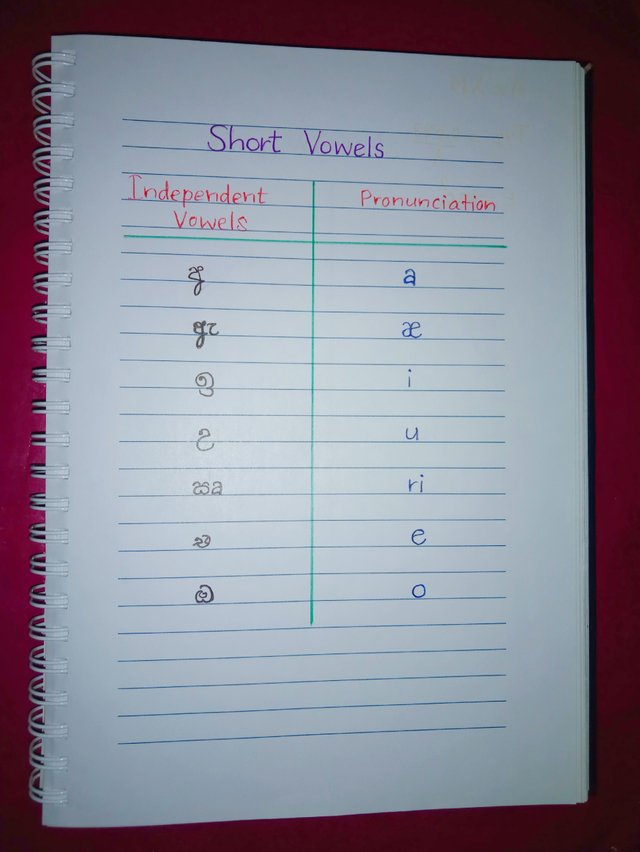 Short Vowels
Independent Vowels
Pronunciation
අ a
ඇ æ
ඉ i
උ u
ඍ ri
එ e
ඔ o